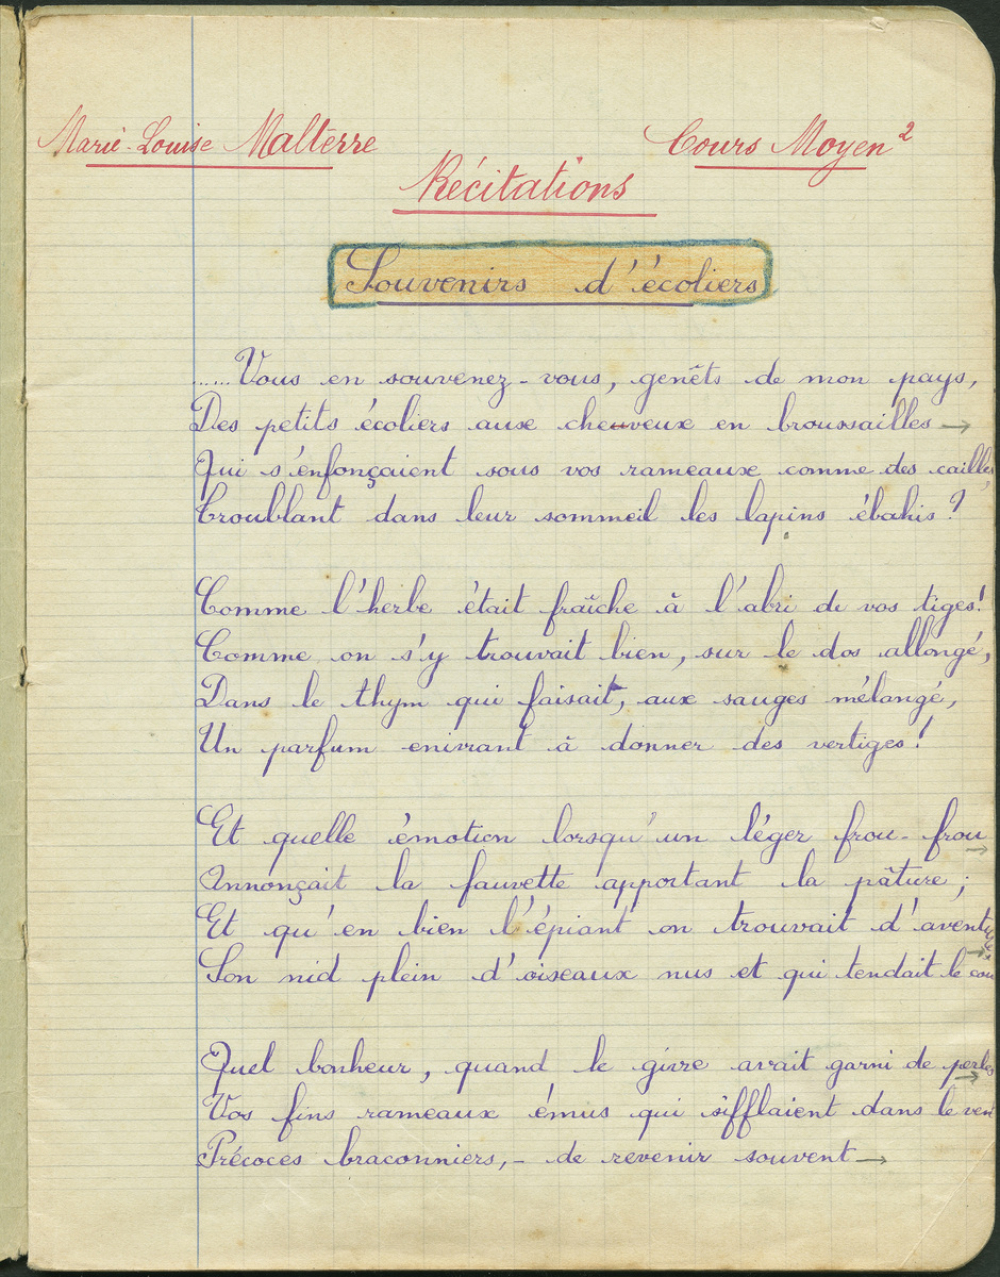 Marie-Louise Malterre
Cours Moyen 2
Récitations
Souvenirs d'écoliers
......Vous en souvenez-vous, genêts de mon pays,
Des petits écoliers aux cheuveux en broussailles →
Qui s'enfonçaient sous vos rameaux comme des cailles,
Troublant dans leur sommeil les lapins ébahis ?
Comme l'herbe était fraîche à l'abri de vos tiges !
Comme on s'y trouvait bien, sur le dos allongé,
Dans le thym qui faisait, aux sauges mélangé,
Un parfum enivrant à donner des vertiges !
Et quelle émotion lorsqu'un léger frou-frou →
Annonçait la fauvette apportant la pâture ;
Et qu'en bien l'épiant on trouvait d'aventure →
Son nid plein d'oiseaux nus et qui tendait le cou
Quel bonheur, quand le givre avait garni de perles →
Vos fins rameaux émus qui sifflaient dans le vent
Précoces braconniers, - de revenir souvent →